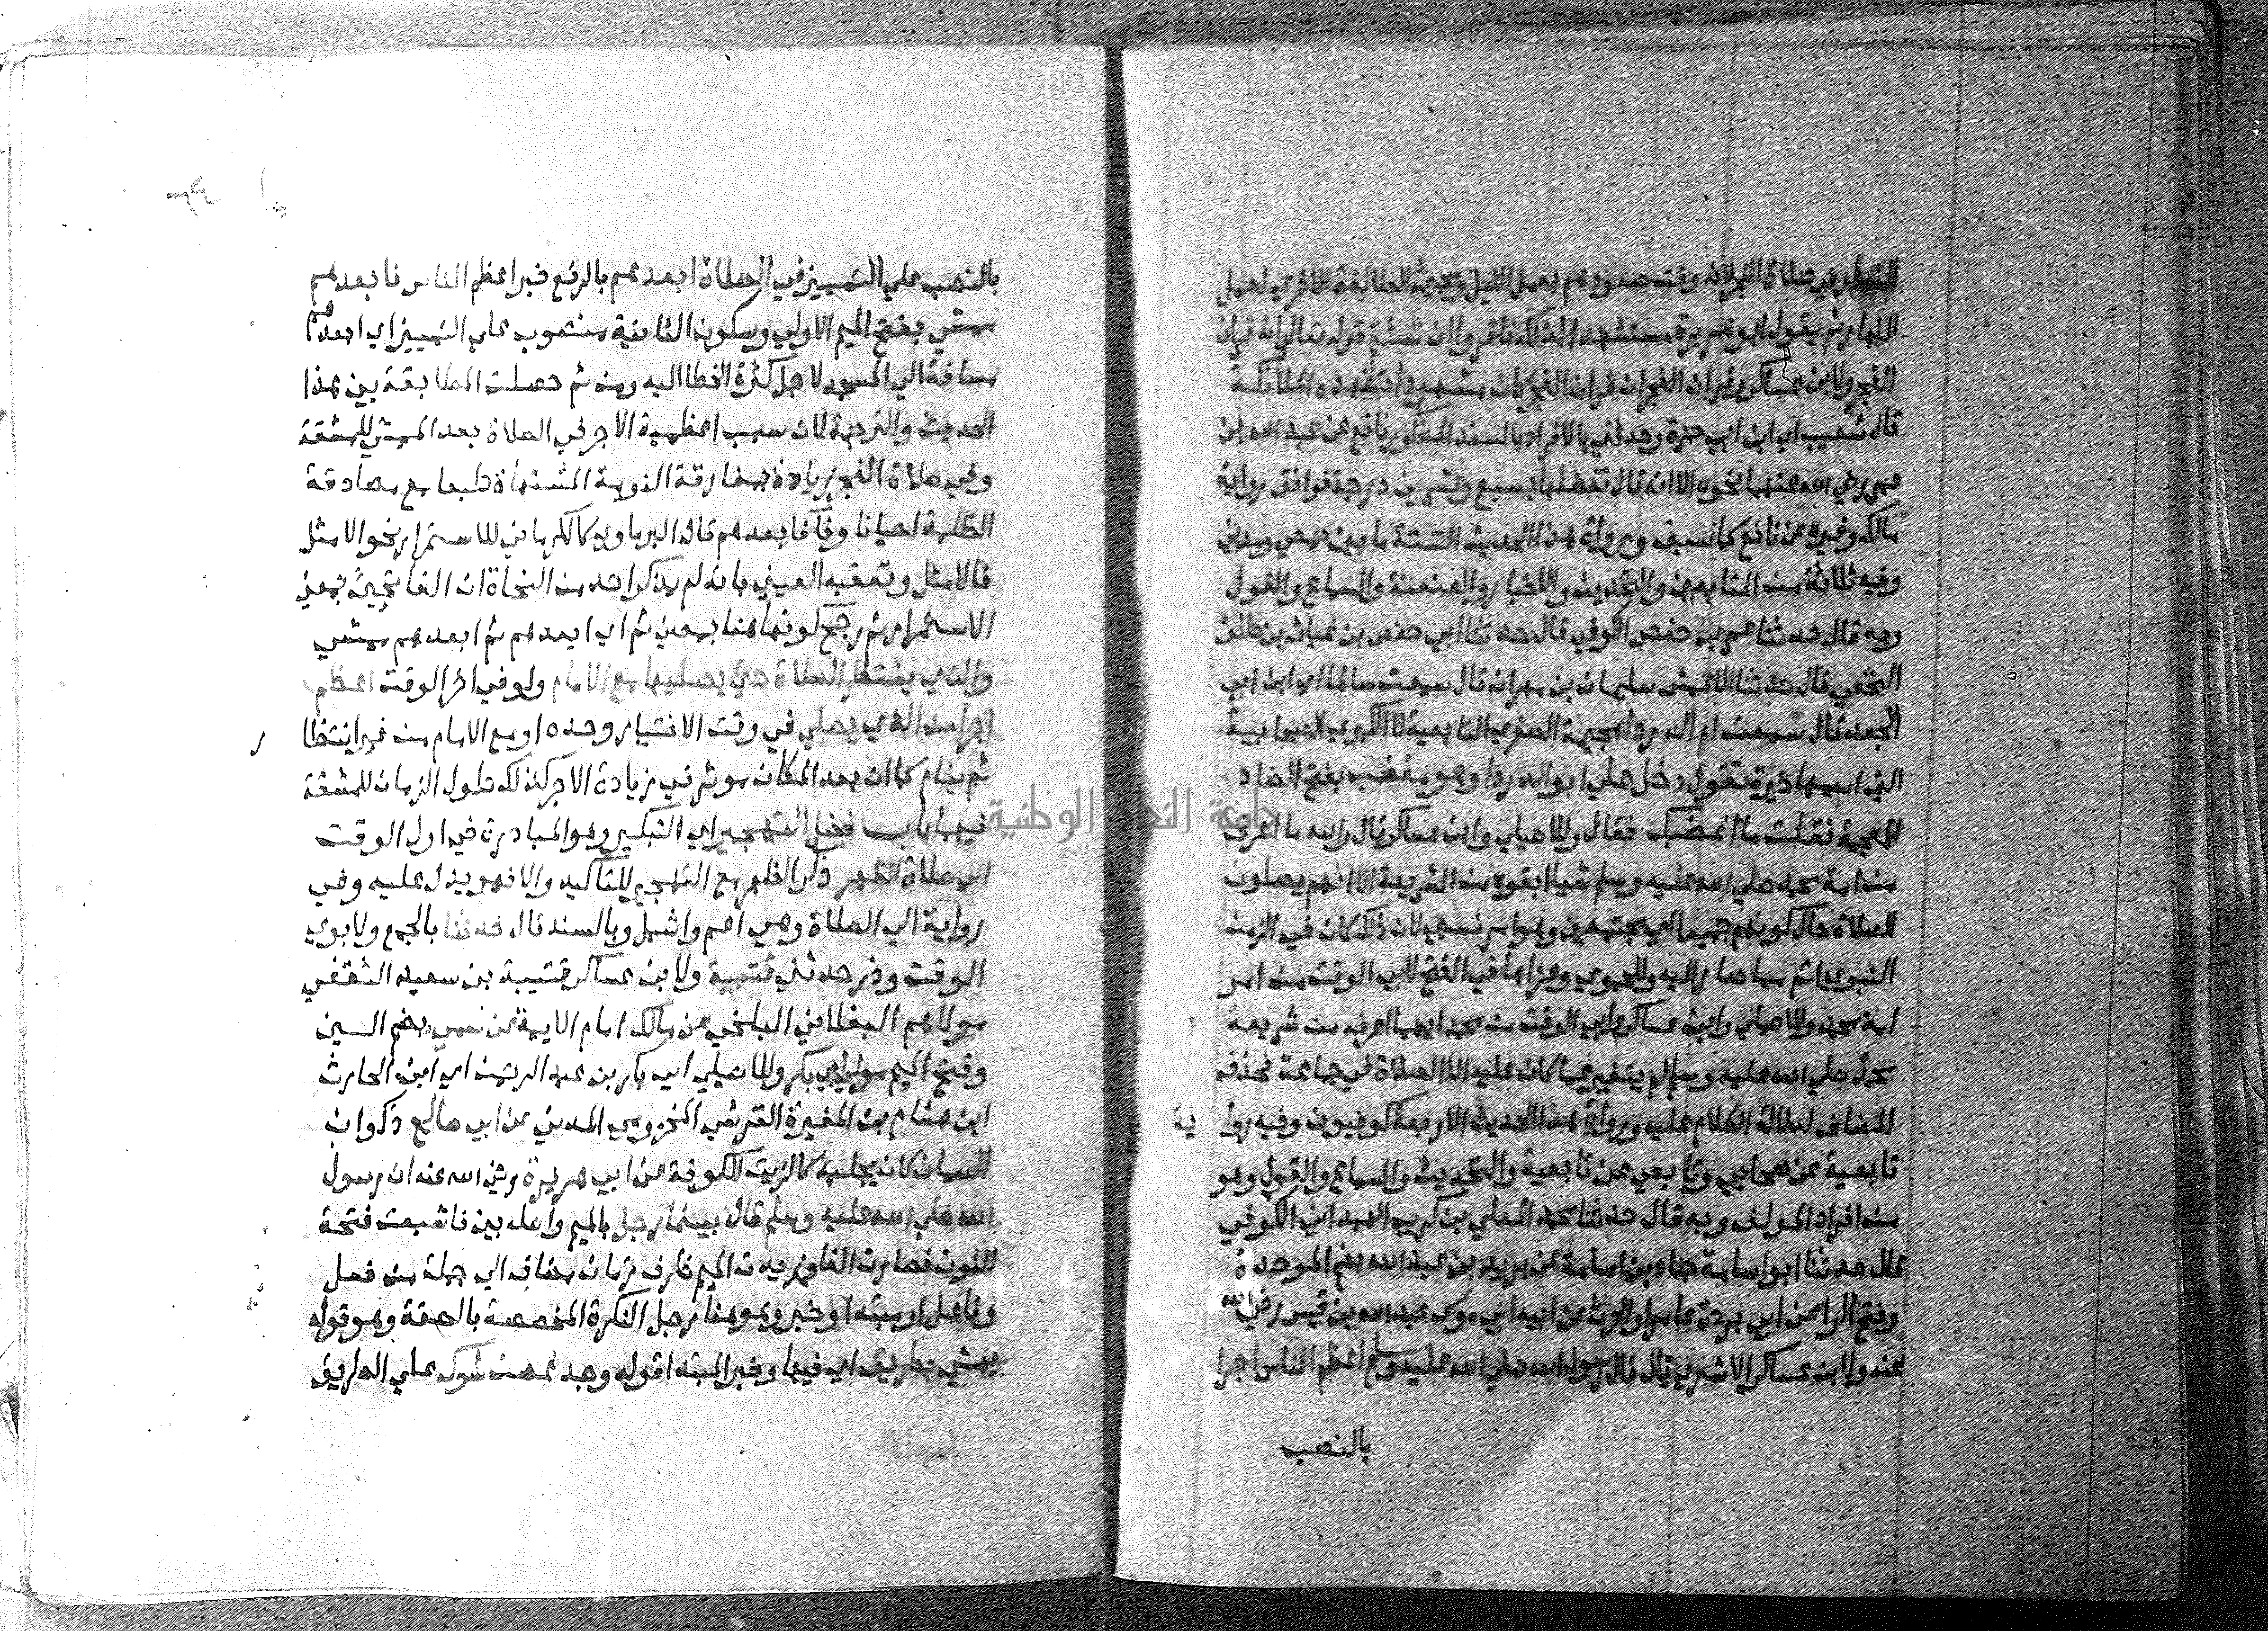 النهار في صلاة الفجر لانه وقت صعودهم بعمل الليل ومجيئ الطائفة الاخري لعمل
النهار ثم يقول ابو هريرة مستشهدا لذلك فاقروا ان شئتم قوله تعالي ان قران
الفجر ولابن عساكر وقران الفجر ان قران الفجر كان مشهودا تشهده الملائكة
قال شعيب اي ابن ابي حمزة وحدثني بالافراد بالسند المذكور نافع عن عبد الله بن
عمر رضي الله عنهما نحوه الا انه قال تفضلها بسبع وعشرين درجة فوافق رواية
مالك وغيره عن نافع كما سبق ورواة هذا الحديث الستة ما بين حمصي ومدني
وفيه ثلاثة من التابعين والتحديث والاخبار والعنعنة والسماع والقول
وبه قال حدثنا عمر بن حفص الكوفي قال حدثنا ابي حفص بن غياث بن طلق
النخعي قال حدثنا الاعمش سليمان بن مهران قال سمعت سالما اي ابن ابي
الجعد قال سمعت ام الدردا هجيمة الصغري التابعية لا الكبري الصحابية
التي اسمها خيرة تقول دخل علي ابو الدردا وهو مغضب بفتح الضاد
المعجمة فقلت ما اغضبك فقال وللاصيلي وابن عساكر قال والله ما اعرف
من امة محمد صلي الله عليه وسلم شيا ابقوه من الشريعة الا انهم يصلون
الصلاة حال كونهم جميعا اي مجتمعين وهو امر نسبي لان ذلك كان في الزمن
النبوي اتم مما صار اليه وللحموي وعزاها في الفتح لابي الوقت من امر
امة محمد وللاصيلي وابن عساكر وابي الوقت من محمد اي ما اعرف من شريعة
محمد صلي الله عليه وسلم لم يتغير عما كان عليه الا الصلاة في جماعة فحذف
المضاف لدلالة الكلام عليه ورواة هذا الحديث الاربعة كوفيون وفيه روا ية
تابعية عن صحابي وتابعي عن تابعية والتحديث والسماع والقول وهو
من افراد المولف وبه قال حدثنا محمد المعلي بن كريب الهمداني الكوفي
قال حدثنا ابو اسامة حماد بن اسامة عن بريد بن عبد الله بضم الموحدة
وفتح الرا عن ابي بردة عامر او الحرث عن ابيه ابي موسي عبد الله بن قيس رضي الله
عنه ولابن عساكر الاشعري قال قال رسول الله صلي الله عليه وسلم اعظم الناس اجرا
بالنصب
بالنصب علي التمييز في الصلاة ابعدهم بالرفع خبر اعظم الناس فابعدهم
ممشي بفتح الميم الاولي وسكون الثانية منصوب علي التمييز اي ابعدهم
مسافة الي المسجد لاجل كثرة الخطا اليه ومن ثم حصلت المطابقة بين هذا
الحديث والترجمة لان سبب اعظمية الاجر في الصلاة بعد الممشي للمشقة
وفي صلاة الفجر زيادة بمفارقة النومة المشتهاة طبعا مع مصادفة
الظلمة احيانا وفا فابعدهم قال البرماوي كالكرماني للاستمرار نحو الامثل
فالامثل وتعقبه العيني بانه لم يذكر احد من النحاة ان الفا تجيئ بمعني
الاستمرار ثم رجح كونها هنا بمعني ثم اي ابعدهم ثم ابعدهم ممشي
والذي ينتظر الصلاة حتي يصليها مع الامام ولو في اخر الوقت اعظم
اجرا من الذي يصلي في وقت الاختيار وحده او مع الامام من غير انتظا ر
ثم ينام كما ان بعد المكان موثر في زيادة الاجر كذلك طول الزمان للمشقة
فيها باب فضل التهجير اي التبكير وهو المبادرة في اول الوقت
الي صلاة الظهر ذكر الظهر مع التهجير للتاكيد والا فهو يدل عليه وفي
رواية الي الصلاة وهي اعم واشمل وبالسند قال حدثنا بالجمع ولابوي
الوقت وذر حدثني قتيبة ولابن عساكر قتيبة بن سعيد الثقفي
مولاهم البغلاني البلخي عن مالك امام الايمة عن سمي بضم السين
وفتح الميم مولي ابي بكر وللاصيلي ابي بكر بن عبد الرحمن اي ابن الحارث
ابن هشام بن المغيرة القرشي المخزومي المدني عن ابي صالح ذكوان
السمان كان يجلبه كالزيت للكوفة عن ابي هريرة رضي الله عنه ان رسول
الله صلي الله عليه وسلم قال بينما رجل بالميم واصله بين فاشبعت فتحة
النون فصارت الفا وزيدت الميم ظرف زمان مضاف الي جملة من فعل
وفاعل او مبتدا وخبر وهو هنا رجل النكرة المخصصة بالصفة وهو قوله
يمشي بطريق اي فيها وخبر المبتدا قوله وجد غصن شوك علي الطريق
جامعة النجاح الوطنية